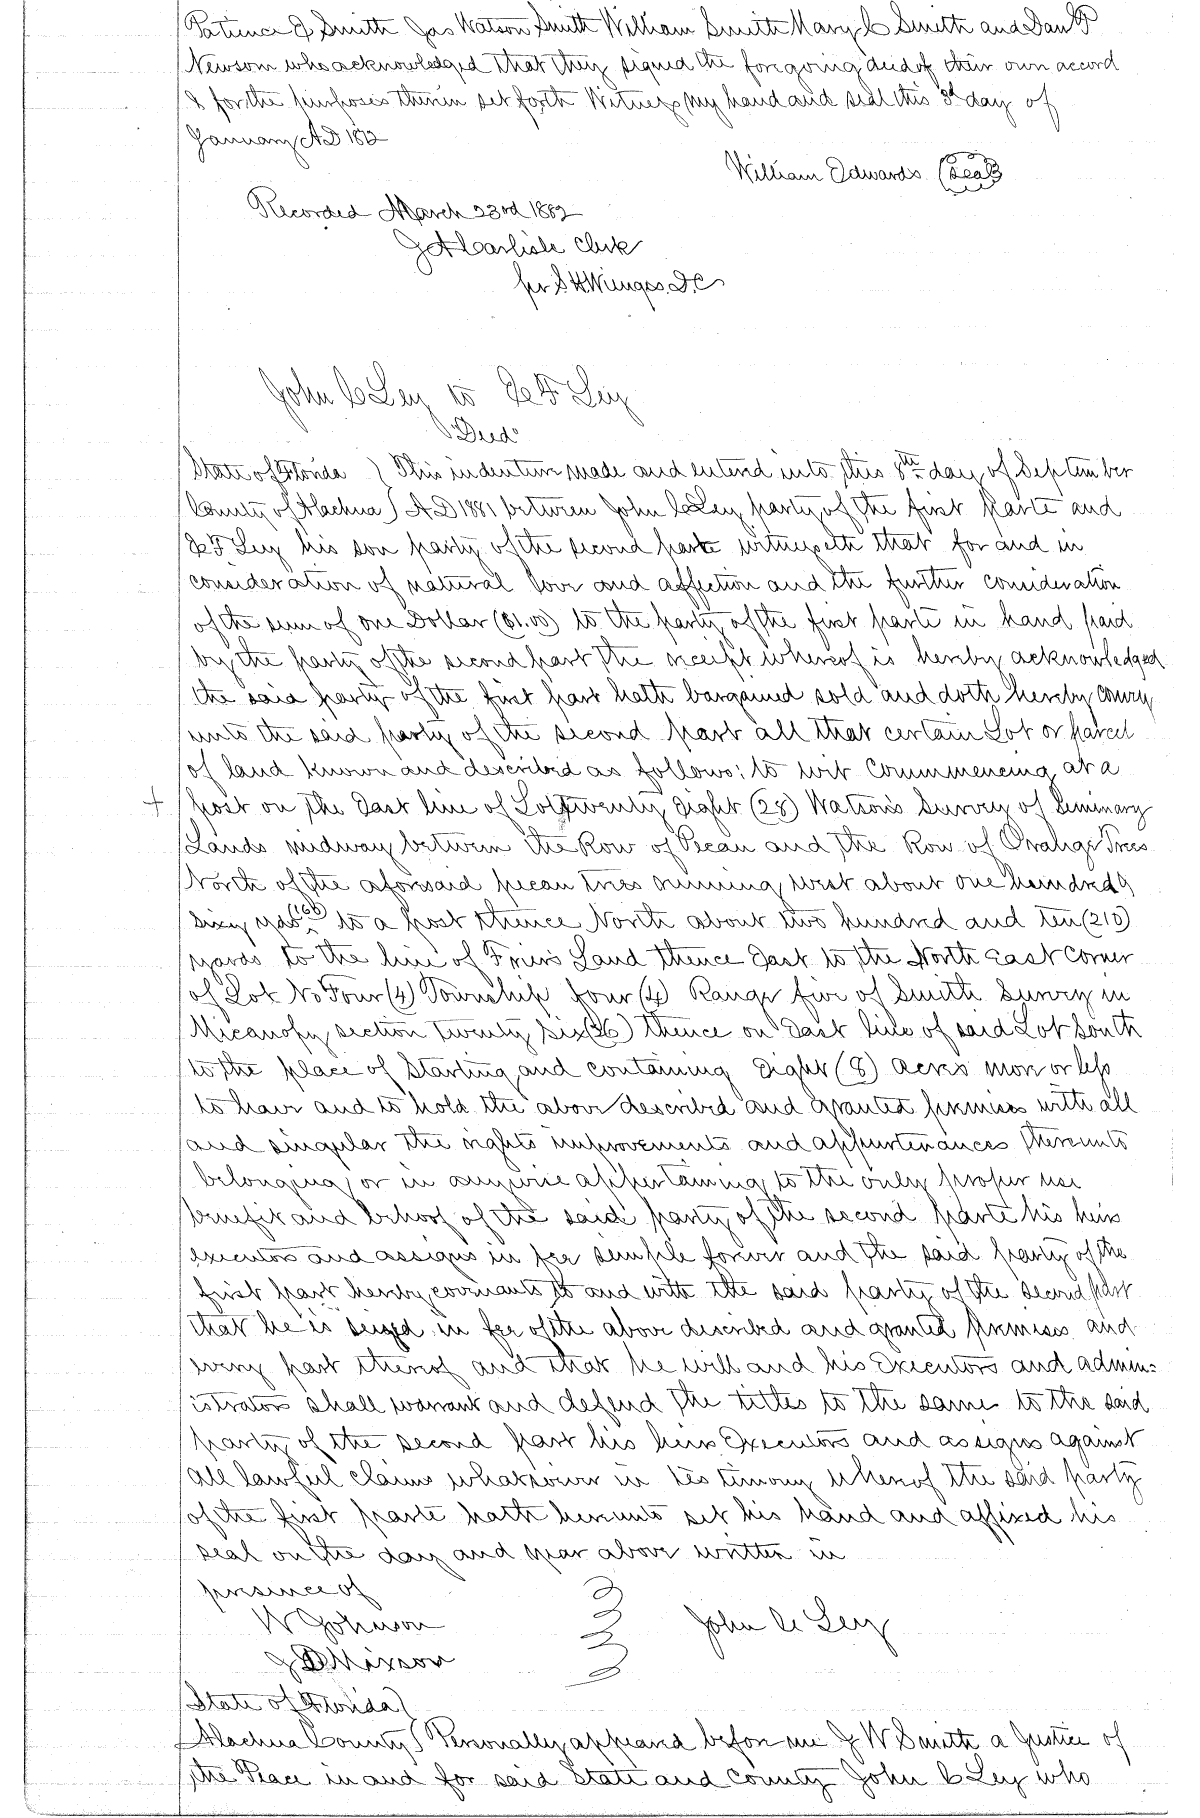 Patience E Smith Jas Watson Smith William Smith Mary C Smith and Dan F
Newsom who acknowledged that they signed the foregoing deed of their own accord
& for the purposes therein set forth Witness my hand and seal this 3d day of
January AD 1882
William Edwards (Seal)
Recorded March 23rd 1882
J A Carlisle Clerk
per S H Wienges D.C
John C Ley to Ley
"Deed"
State of Florida ) This indenture made and entered into this 8th day of September
County of Alachua ) AD 1881 between John C Ley party of the first parte and
Ley his son party of the second parte witnesseth that for and in
consideration of natural love and affection and the further consideration
of the sum of one Dollar ($1.00) to the party of the first parte in hand paid
by the party of the second part the receipt whereof is hereby acknowledged
the said party of the first part hath bargained sold and doth hereby convey
unto the said party of the second part all that certain Lot or parcel
of land known and described as follows; to wit Commmencing at a
+ post on the East line of Lot twenty eight (28) Watson's Survey of Seminary
Lands midway between the Row of Pecan and the Row of Orange Trees
North of the aforesaid pecan trees running west about one hundred &
sixy yds (160) to a post thence North about two hundred and ten (210)
yards to the line of Land thence East to the North East Corner
of Lot No Four (4) Township four (4) Range five of Smith Survey in
Micanopy section twenty six (26) thence on East line of said Lot South
to the place of starting and containing Eight (8) acres more or less
to have and to hold the above described and granted premises with all
and singular the rights improvements and appurtenances thereunto
belonging or in anywise appertaining to the only proper use
benefit and behoof of the said party of the second parte his heirs
executors and assigns in fee simple forever and the said party of the
first part hereby covenants to and with the said party of the second part
that he is seized in fee of the above described and granted premises and
every part thereof and that he will and his Executors and admin=
istrators shall warrant and defend the titles to the same to the said
party of the second part his heirs Executors and assigns against
all lawful claims whatsoever in testimony whereof the said party
of the first parte hath hereunto set his hand and affixed his
seal on the day and year above written in
presence of
W Johnson John C Ley
J Mixson
State of Florida )
Alachua County ) Personally appeared before me J W Smith a Justice of
the Peace in and for said State and County John C Ley who